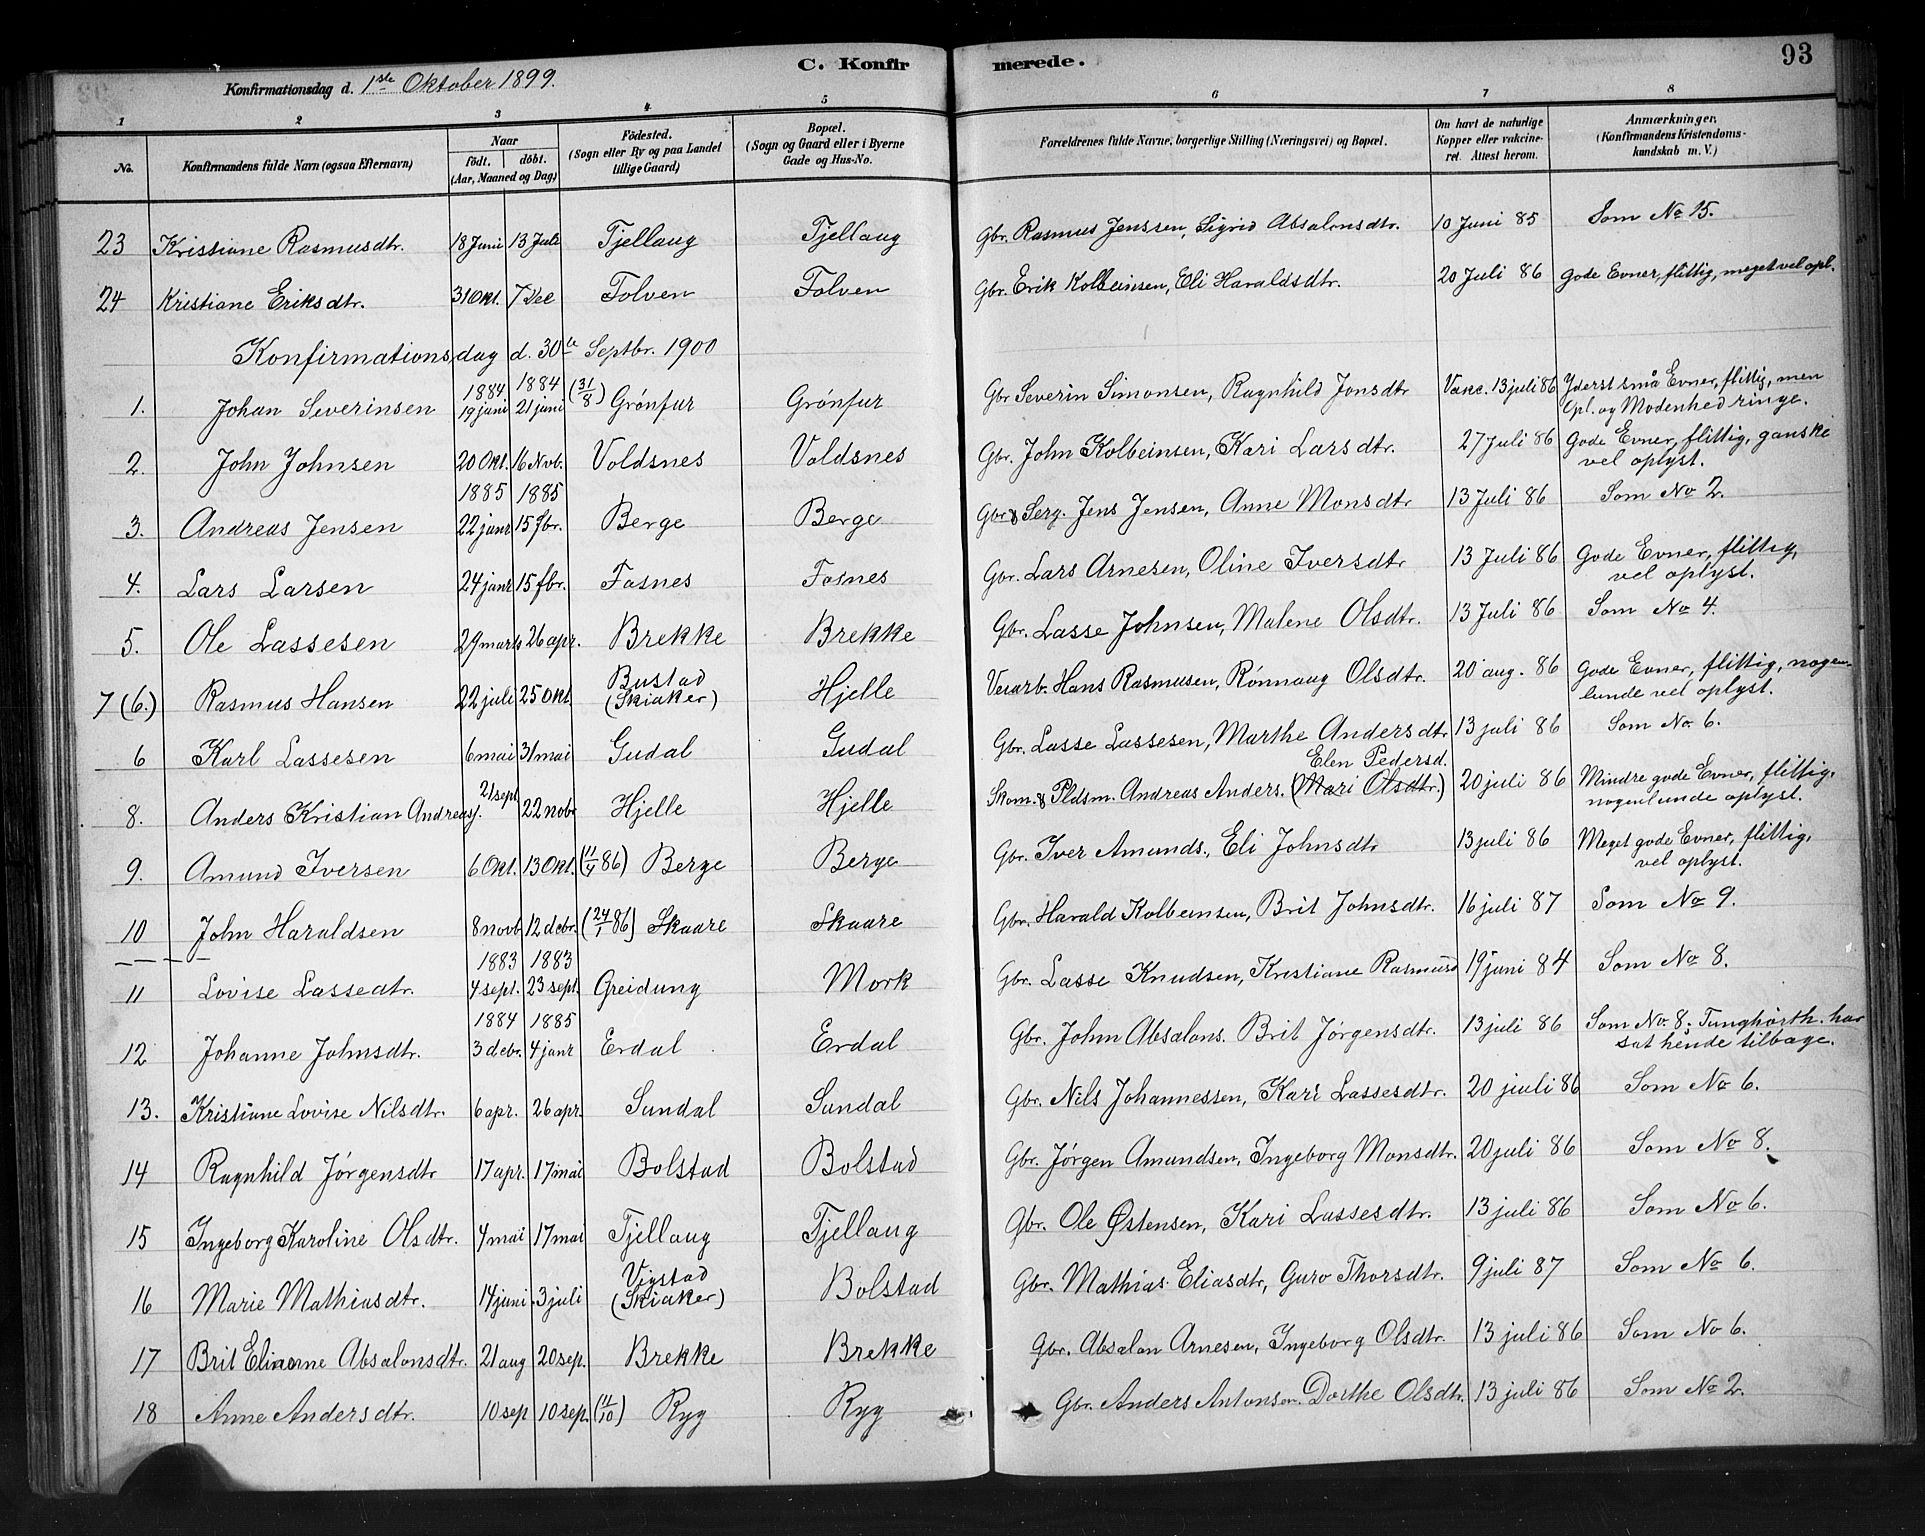 C. Konfirmerede. 93
Konfirmationsdag d. 1ste Oktober 1899.
1 2 3 4 5 6 7 8
No. Konfirmandens fulde Navn (ogsaa Efternavn) Naar födt. döbt. (Aar, Maaned og Dag) Födested. (Sogn eller By og paa Landet tillige Gaard) Bopæl. (Sogn og Gaard eller i Byerne Gade og Hus-No. Forældrenes fulde Navne, borgerlige Stilling (Næringsvei) og Bopæl. Om havt de naturlige Kopper eller vakcineret. Attest herom. Anmærkninger. (Konfirmandens Kristendomskundskab m. V.)
23 Kristiane Rasmusdtr. 18 Juni 13 Juli Tjellaug Tjellaug Gbr. Rasmus Jenssen, Sigrid Absalonsdtr. 10 Juni 85 Som No 15.
24 Kristiane Eriksdtr. 31 Okt. 7 Dec Tolven Folven Gbr. Erik Kolbeinsen, Eli Haraldsdtr. 20 Juli 86 Gode Evner, flittig, meget vel opl.
Konfirmationsdag d. 30te Septbr. 1900
1884 1884
1. Johan Severinsen 19 juni 21 juni (31/8) Grónfur Grónfur Gbr Severin Simonsen, Ragnhild Jonsdtr Vakc. 13 juli 86 Yderst små Evner, flittig, men
Opl. og Modenhed ringe.
2. John Johnsen 20 Okt. 16 Nvb. Voldsnes Voldsnes Gbr. John Kolbeinsen, Kari Larsdtr. 27 Juli 86 Gode Evner, flittig, ganske
vel oplyst.
1885 1885
3. Andreas Jensen 22 janr 15 fbr. Berge Berge Gbr & Serg. Jens Jensen, Anne Monsdtr 13 Juli 86 Som No 2.
4. Lars Larsen 24 janr 15 fbr. Fosnes Fosnes Gbr. Lars Arnesen, Oline Iversdtr 13 Juli 86 Gode Evner, flittig,
vel oplyst.
5. Ole Lassesen 29 marts 26 apr. Brekke Brekke Gbr. Lasse Johnsen, Malene Olsdtr. 13 Juli 86 Som No 4.
7 (6.) Rasmus Hansen 22 juli 25 Okt. Bustad (Skiaker) Hjelle Veiarb. Hans Rasmusen, Rónnaug Olsdtr. 20 aug. 86 Gode Evner, flittig, nogen-
lunde vel oplyst.
6 Karl Lassesen 6 mai 31 mai Gudal Gudal Gbr. Lasse Lassesen, Marthe Andersdtr 13 juli 86 Som No 6.
Elen Pedersd.
8. Anders Kristian Andreasj. 21 sept 22 nobr Hjelle Hjelle Skom. & Pldsm. Andreas Anders. (Mari Olsdtr.) 20 juli 86 Mindre gode Evner, flittig,
nogenlunde oplyst.
9. Amund Iversen 6 Okt. 13 Okt. (11/4 86) Berge Berge Gbr. Iver Amunds., Eli Johnsdtr 13 juli 86 Meget gode Evner, flittig,
vel oplyst.
10 John Haraldsen 8 novb 12 debr. (24/1 86) Skaare Skaare Gbr. Harald Kolbeinsen, Brit Johnsdtr. 16 juli 87 Som No 9.
1883 1883
11 Lovise Lassedtr. 4 sept. 23 sept. Greidung Mork Gbr. Lasse Knudsen, Kristiane Rasmusd 19 juni 84 Som No 8.
1884 1885
12 Johanne Johnsdtr. 3 debr. 4 janr Erdal Erdal Gbr. John Absalons. Brit Jórgensdtr. 13 juli 86 Som No 8; Tunghórth. har
sat hende tilbage.
13. Kristiane Lovise Nilsdtr. 6 apr. 26 apr. Sundal Sundal Gbr. Nils Johannessen, Kari Lassesdtr. 20 juli 86 Som No 6.
14 Ragnhild Jórgensdtr 17 apr. 17 mai Bolstad Bolstad Gbr. Jórgen Amundsen, Ingeborg Monsdtr. 20 juli 86 Som No 8.
15 Ingeborg Karoline Olsdtr. 4 mai 17 mai Tjellaug Tjellaug Gbr. Ole Østensen, Kari Lassesdtr. 13 juli 86 Som No 6.
16 Marie Mathiasdtr. 14 juni 3 juli Vigstad (Skiaker) Bolstad Gbr. Mathias Eliasdtr, Guro Thorsdtr. 9 juli 87 Som No 6.
17 Brit Elianne Absalonsdtr. 21 aug 20 sep. Brekke Brekke Gbr. Absalon Arnesen, Ingeborg Olsdtr. 13 juli 86 Som No 6.
18 Anne Andersdtr. 10 sep 10 sep. (11/10) Ryg Ryg Gbr. Anders Antonsen. Dorthe Olsdtr. 13 juli 86 Som No 2.